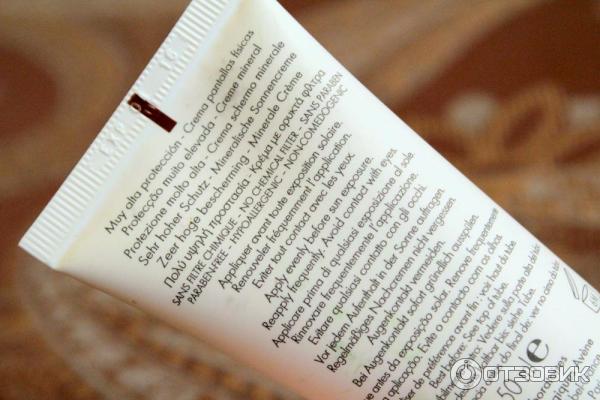 Muy alta protección - Crema pantallas físicas
Protecção muito elevada - Creme mineral
Protezione molto alta - Crema schermo minerale
Sehr hoher Schutz - Mineralische Sonnencreme
Zeer hoge bescherming - Minerale Crème
Πολύ υψηλή προστασία - Κρέμα με ορυκτά φίλτρα
SANS FILTRE CHIMIQUE - NO CHEMICAL FILTER - SANS PARABEN
PARABEN-FREE - HYPOALLERGENIC - NON-COMEDOGENIC
Appliquer avant toute exposition solaire.
Renouveler fréquemment l'application.
Eviter tout contact avec les yeux.
Apply evenly before sun exposure.
Reapply frequently. Avoid contact with eyes.
Applicare prima di qualsiasi esposizione al sole.
Rinnovare frequentemente l'applicazione.
Evitare qualsiasi contatto con gli occhi.
Vor jedem Aufenthalt in der Sonne auftragen.
Regelmäßiges Nachcremen nicht vergessen.
Augenkontakt vermeiden.
Bei Augenkontakt sofort gründlich ausspülen.
antes da exposição solar. Renove frequentemente
aplicação. Evite o contacto com os olhos.
de préférence avant fin : voir haut du tube
Best before: See top of tube.
Vedere sulla parte alta del tubo
bis: siehe Tube.
50
e
ОТЗОВИК